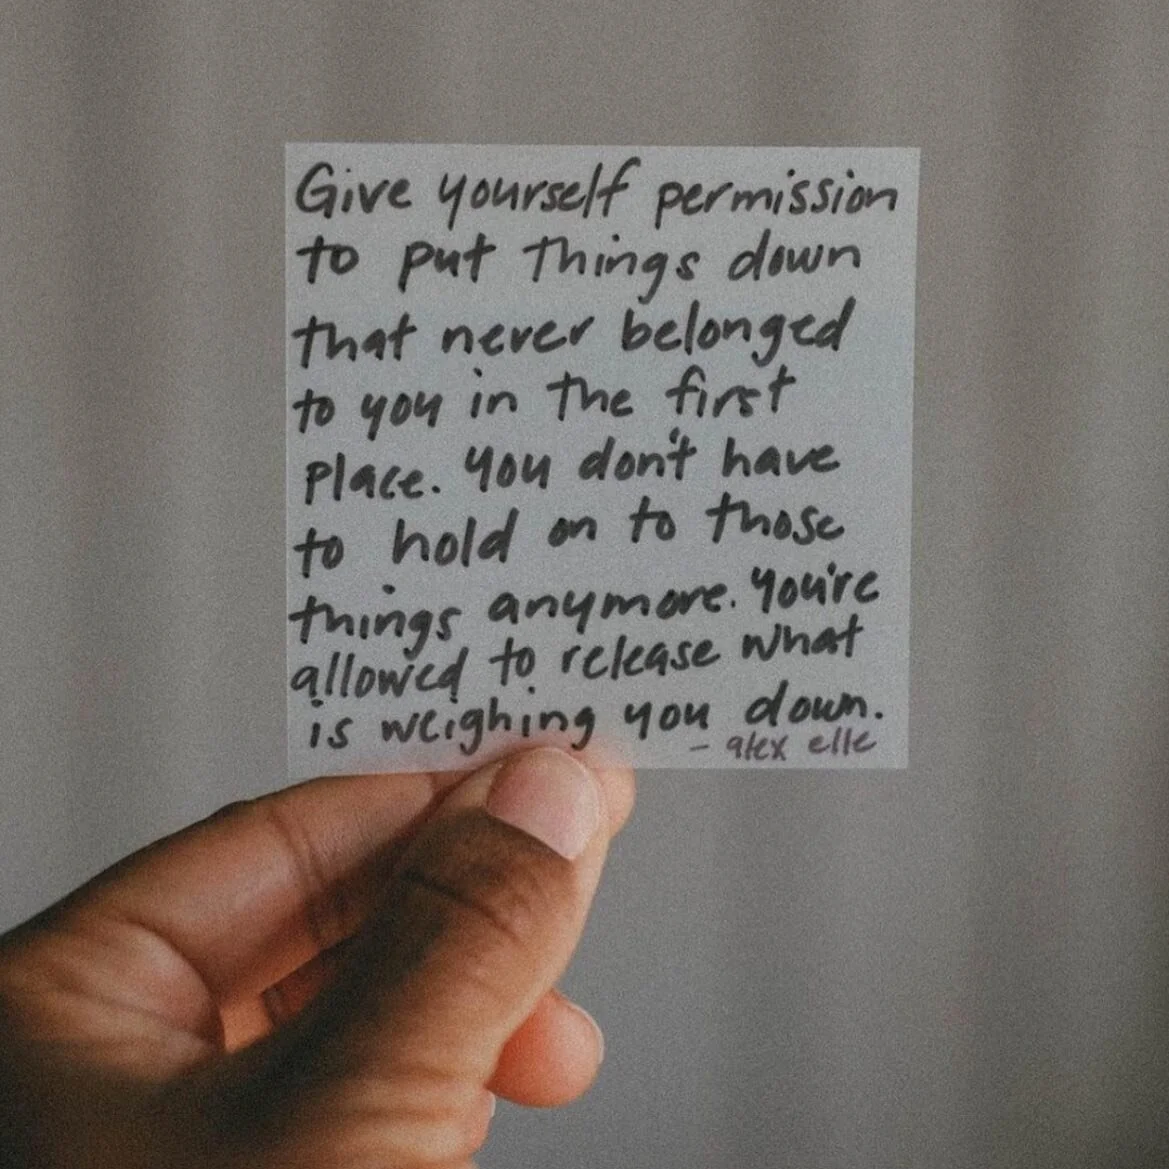 Give yourself permission
to put things down
that never belonged
to you in the first
place. You don't have
to hold on to those
things anymore. You're
allowed to release what
is weighing you down.
- alex elle